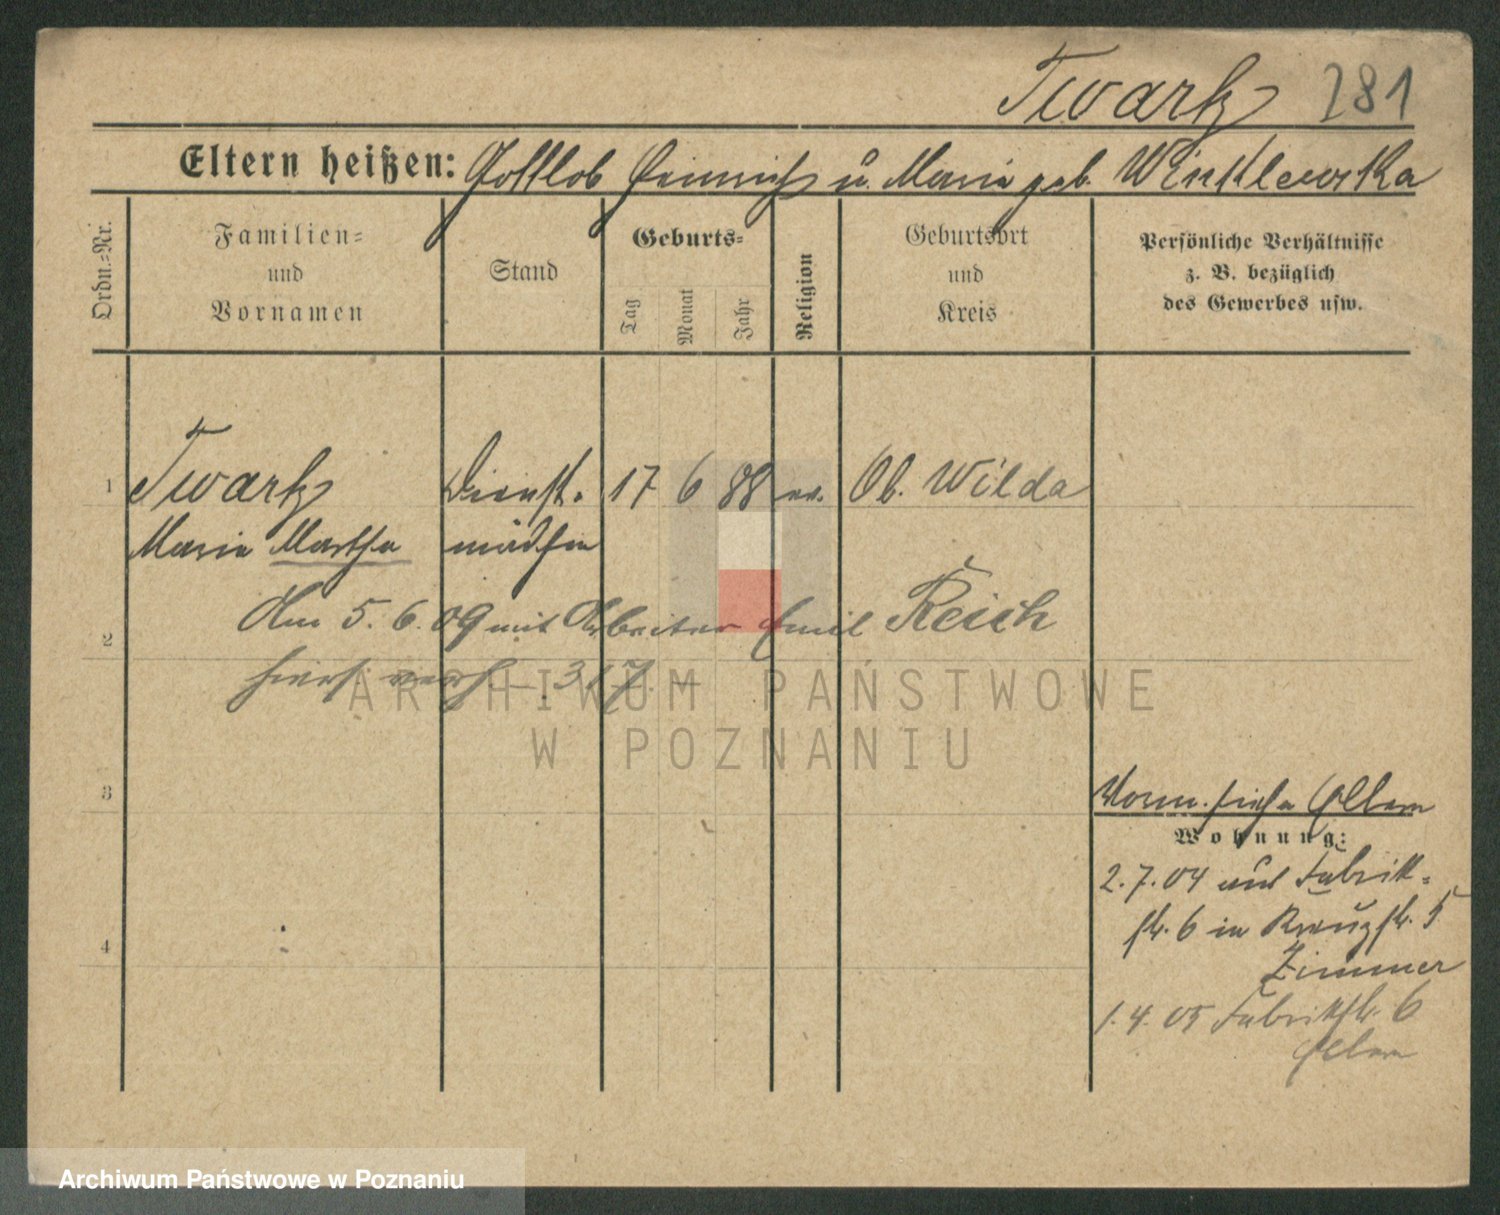 Twartz 281
Eltern heißen: Gottlob Heinrich u. Maria geb. Winklewska
Ordn.-Nr.
Familien-
und
Vornamen
Stand
Geburts-
Tag
Monat
Jahr
Religion
Geburtsort
und
Kreis
Persönliche Verhältnisse
z. B. bezüglich
des Gewerbes usw.
1 Twartz Dienst- 17 6 88 ev. Ob. Wilda
Marie Martha mädchen
2 Am 5. 6. 09 mit Arbeiter Emil Reich
hiers. verh.
ARCHIWUM PAŃSTWOWE
W POZNANIU
3
Wohn. siehe Eltern
Wohnung:
2.7.04 aus Fabrik-
str. 6 in Kreuzstr. 5
4
Zimmer
1.4.05 Fabrikstr. 6
Eltern
Archiwum Państwowe w Poznaniu